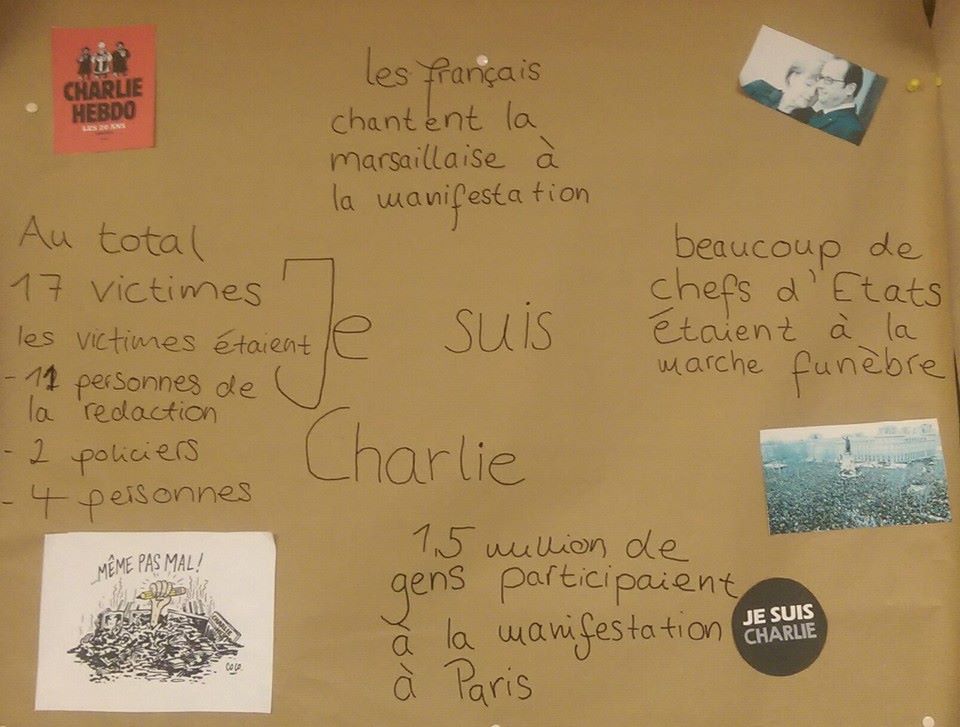 CHARLIE
HEBDO
LES 20 ANS
les français
chantent la
marsaillaise à
la manifestation
Au total
17 victimes
les victimes étaient
- 11 personnes de
la redaction
- 2 policiers
- 4 personnes
Je suis
Charlie
beaucoup de
chefs d'Etats
étaient à la
marche funèbre
MÊME PAS MAL!
COCO
1,5 million de
gens participaient
à la manifestation
à Paris
JE SUIS
CHARLIE